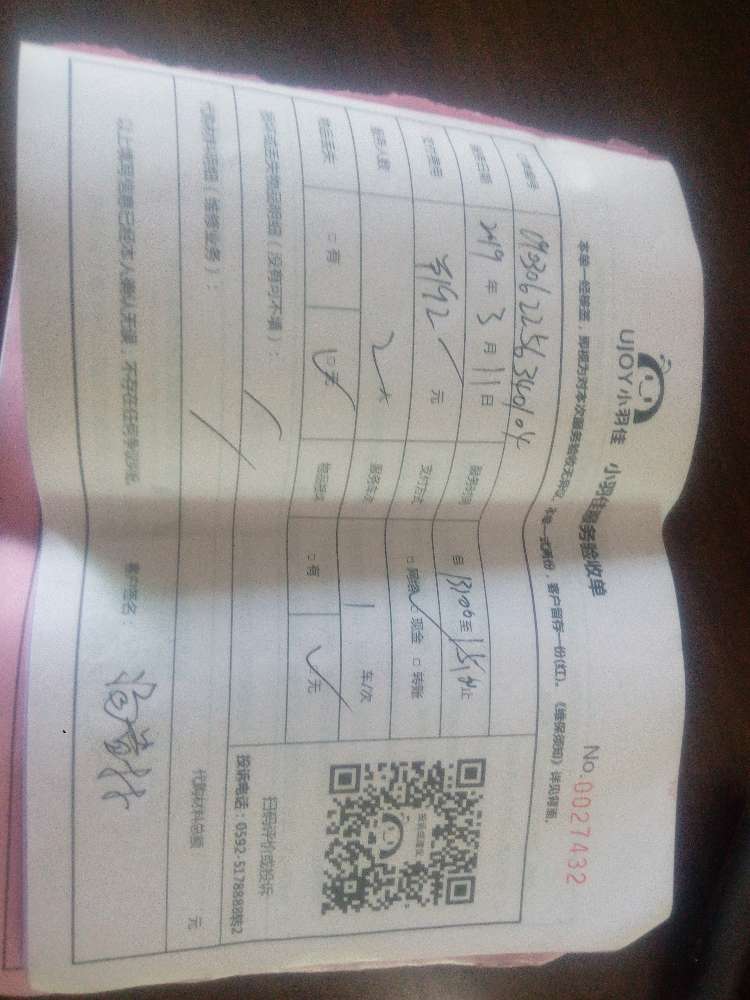 UJOY小羽佳
小羽佳服务验收单
No.0027432
本单一经签署，即视为对本次服务验收无异议。本单一式两份，客户留存一份(红)。《维保须知》详见背面。
订单编号
服务日期 2019 年 3 月 11 日 服务时间 自 13:00 至 15:00 止
支付费用 元 支付方式 □网络 现金 □转账
服务人数 2人 服务车次 1 车/次
物品丢失 □有 □无 物品损坏 □有 □无
损坏或丢失物品明细（没有可不填）：
扫码评价或投诉
投诉电话：0592-5178888转2
代购材料明细（维修业务）： 代购材料总额： 元
以上填写信息已经本人确认无误，不存在任何争议。 客户签名：